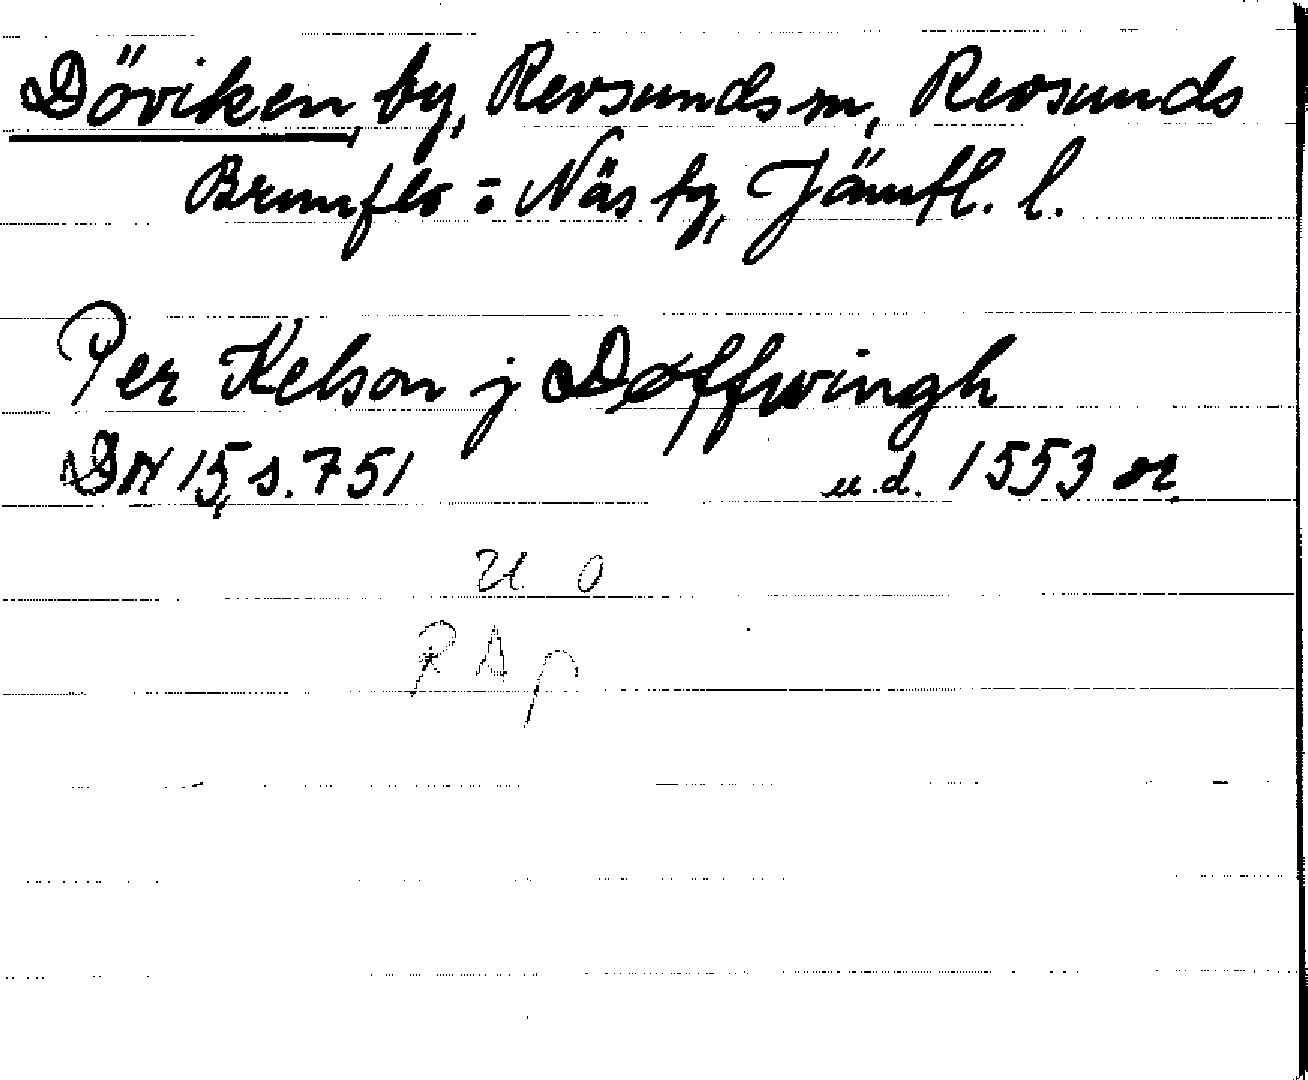 Döviken by, Revsunds sn, Revsunds
Brunflo = Näs tg, Jämtl. l.
Per Kelson j Døffwingh
DN 15, s. 751 u.d. 1553 or.
U O
RAp